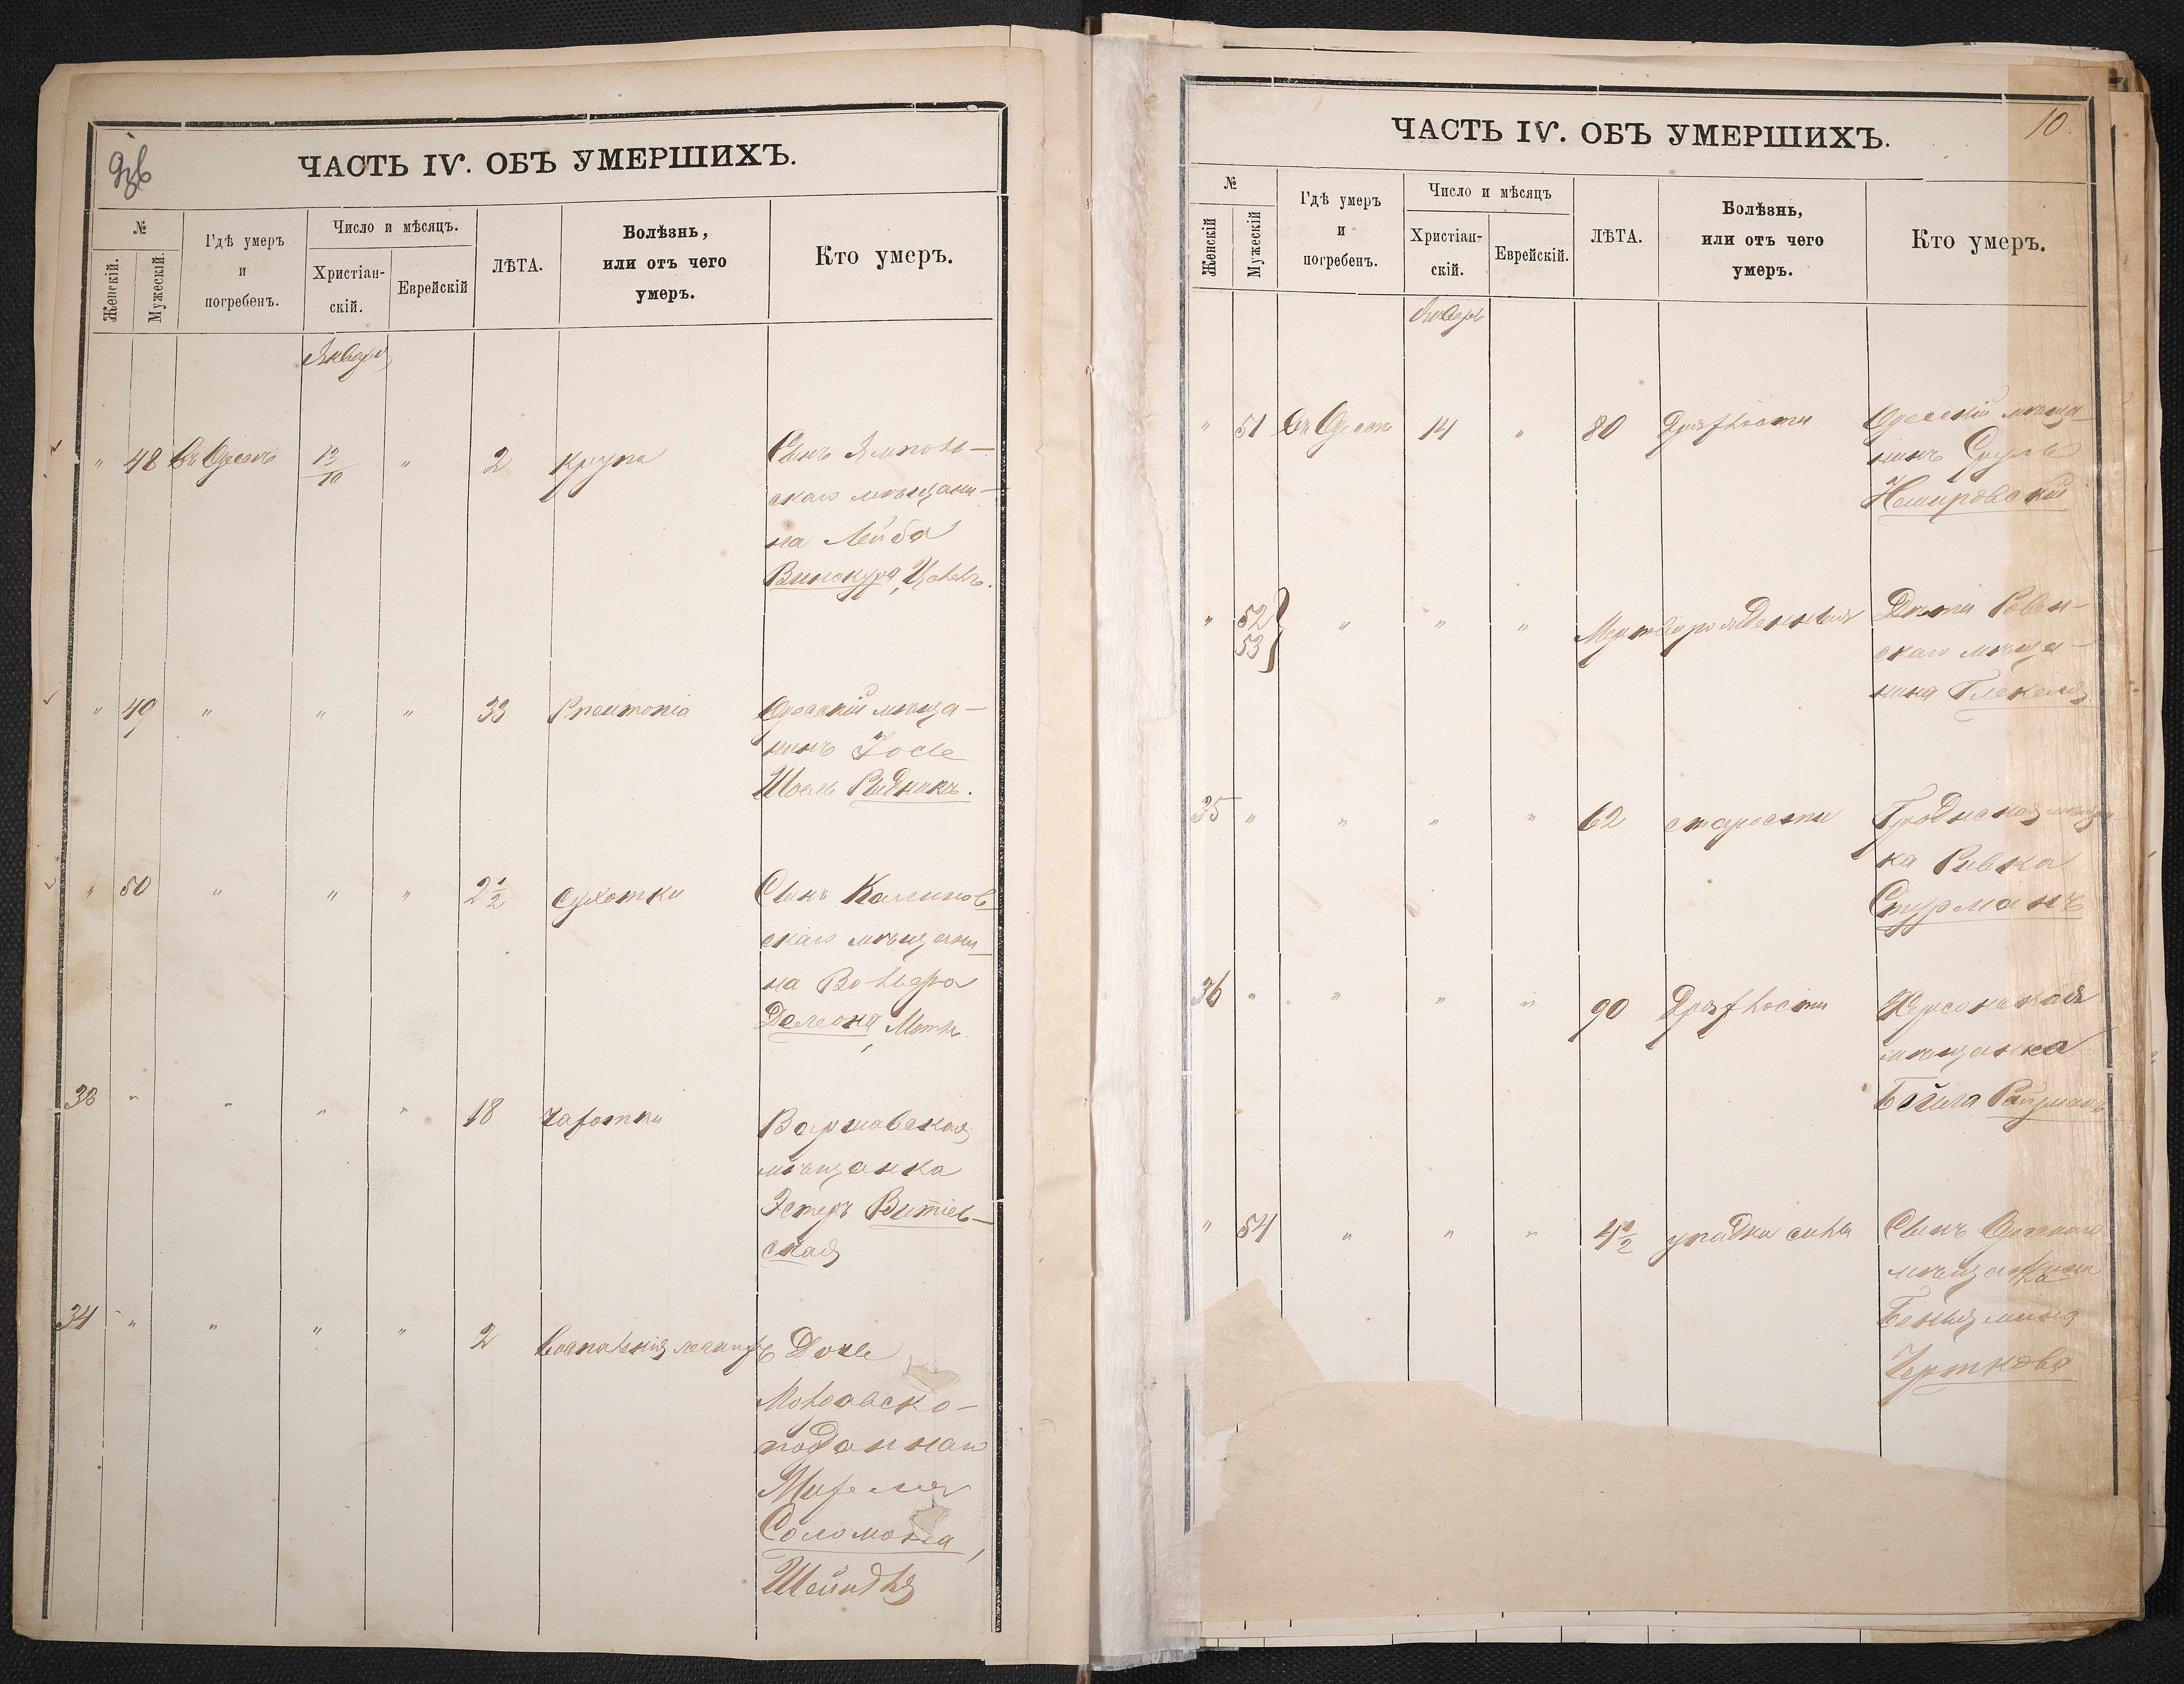 ЧАСТЬ IV. ОБЪ УМЕРШИХЪ.
№
Женскій.
Мужескій.
Гдѣ умеръ
и
погребенъ.
Число и мѣсяцъ.
Христіан-
скій.
Еврейскій
ЛѢТА.
Болѣзнь,
или отъ чего
умеръ.
Кто умеръ.
Января
" 48 Въ Одессѣ 13/10 " 2 Крупа Сынъ Ямполь-
скаго мѣщани-
на Лейба
Винокура,
" 49 " " " 33 Pneumonia Одесскій мѣща-
нинъ Іось
Шоель Рыдникъ.
" 50 " " " 2½ Сухотки Сынъ Калинов
скаго мѣщани-
на Вольфа
Делеона,
33 " " " " 18 Чахотки Варшавская
мѣщанка
Эстеръ Витіев-
ская
34 " " " " 2 Воспаленія легкихъ Дочь
Молдавско-
подданнаго
Соломона,
Шейндля
ЧАСТЬ IV. ОБЪ УМЕРШИХЪ.
10.
№
Женскій
Мужескій
Гдѣ умеръ
и
погребенъ.
Число и мѣсяцъ
Христіан-
скій.
Еврейскій.
ЛѢТА.
Болѣзнь,
или отъ чего
умеръ.
Кто умеръ.
Январь
" 51 Въ Одессѣ 14 " 80 Дряхлости Одесскій мѣща-
нинъ Сруль
Немировскій
" 52 53 " " " Мертворожденныя Дѣти Ровен-
скаго мѣща-
нина
35 " " " " 62 старости Гроднская мѣщан-
ка Ривка
Стурманъ
36 " " " " 90 Дряхлости Херсонская
мѣщанка
Бейла Райзманъ
" 54 " " " 4½ упадка силъ Сынъ Одесскаго
мѣщанина
Беньямина
Черткова